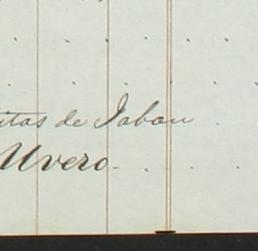 itas de Jaban
Uvero